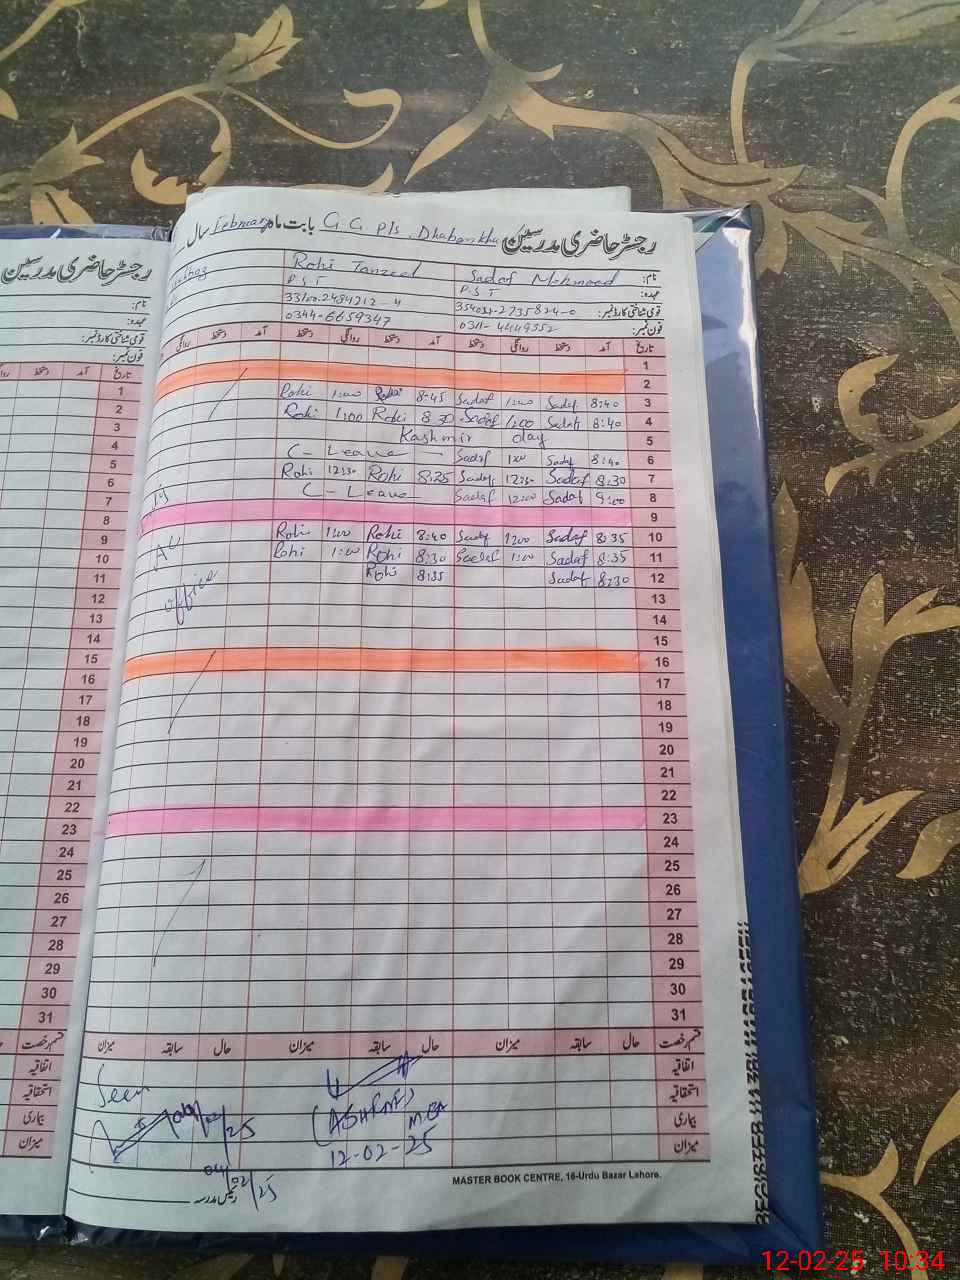 رجسٹر حاضری مدرسین
بابت ماہ February سال G.G. P/S. Dhabankha
نام: Sadaf Mehmood Rohi Tanzeel
عہدہ: P.S.T P.S.T
قومی شناختی کارڈ نمبر:
فون نمبر: 0311-4449352 0344-6659347
تاریخ آمد دستخط روانگی دستخط آمد دستخط روانگی دستخط آمد دستخط روانگی
1
2
3 8:40 Sadaf 1:00 Sadaf 8:45 Rohi 1:00 Rohi
4 8:40 Sadaf 1:00 Sadaf 8:30 Rohi 1:00 Rohi
5 Kashmir day
6 8:40 Sadaf 1:00 Sadaf C-Leave
7 8:30 Sadaf 12:30 Sadaf 8:25 Rohi 12:30 Rohi
8 9:00 Sadaf 12:00 Sadaf C-Leave
9
10 8:35 Sadaf 1:00 Sadaf 8:40 Rohi 1:00 Rohi
11 8:35 Sadaf 1:00 Sadaf 8:30 Rohi 1:00 Rohi
12 8:30 Sadaf 8:35 Rohi
13
14
15
16
17
18
19
20
21
22
23
24
25
26
27
28
29
30
31
office
قسم رخصت حال سابقہ میزان حال سابقہ میزان حال سابقہ میزان
اتفاقیہ
استحقاقیہ
بیماری
میزان
Seen
04/02/25
(ASHRAF)
MEA
12-02-25
رئیس مدرسہ
MASTER BOOK CENTRE, 16-Urdu Bazar Lahore.
رجسٹر حاضری مدرسین
نام:
عہدہ:
قومی شناختی کارڈ نمبر:
فون نمبر:
تاریخ آمد دستخط
1
2
3
4
5
6
7
8
9
10
11
12
13
14
15
16
17
18
19
20
21
22
23
24
25
26
27
28
29
30
31
قسم رخصت
اتفاقیہ
استحقاقیہ
بیماری
میزان
12-02-25 10:34